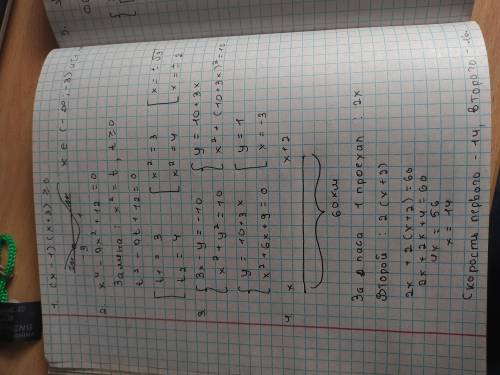 1. (x - 1)(x + 3) ≥ 0
x ∈ (-∞; -3)
2. x⁴ - 9x² + 12 = 0
Замена: x² = t, t ≥ 0
t² - 9t + 12 = 0
t₁ = 3
t₂ = 4
x² = 3
x² = 4
x = ±√3
x = ±2
3. 3x - y = -10
x² + y² = 10
y = 10 + 3x
x² + (10 + 3x)² = 10
y = 10 + 3x
x² + 6x + 9 = 0
y = 1
x = -3
4. x
x + 2
60 км
За 2 часа 1 проехал: 2x
Второй: 2(x + 2)
2x + 2(x + 2) = 60
2x + 2x + 4 = 60
4x = 56
x = 14
Скорость первого - 14, второго - 16.